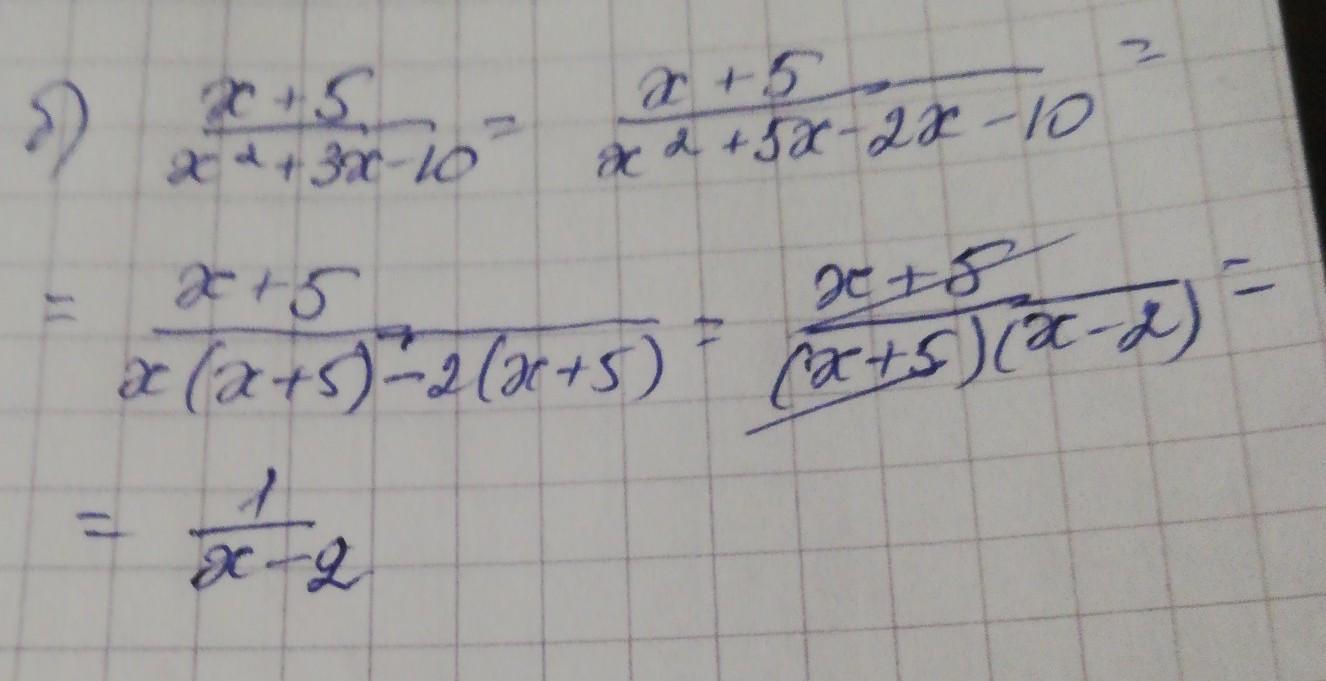 б) (x + 5)/(x² + 3x - 10) = (x + 5)/(x² + 5x - 2x - 10) =
= (x + 5)/(x(x + 5) - 2(x + 5)) = (x + 5)/((x + 5)(x - 2)) =
= 1/(x - 2)